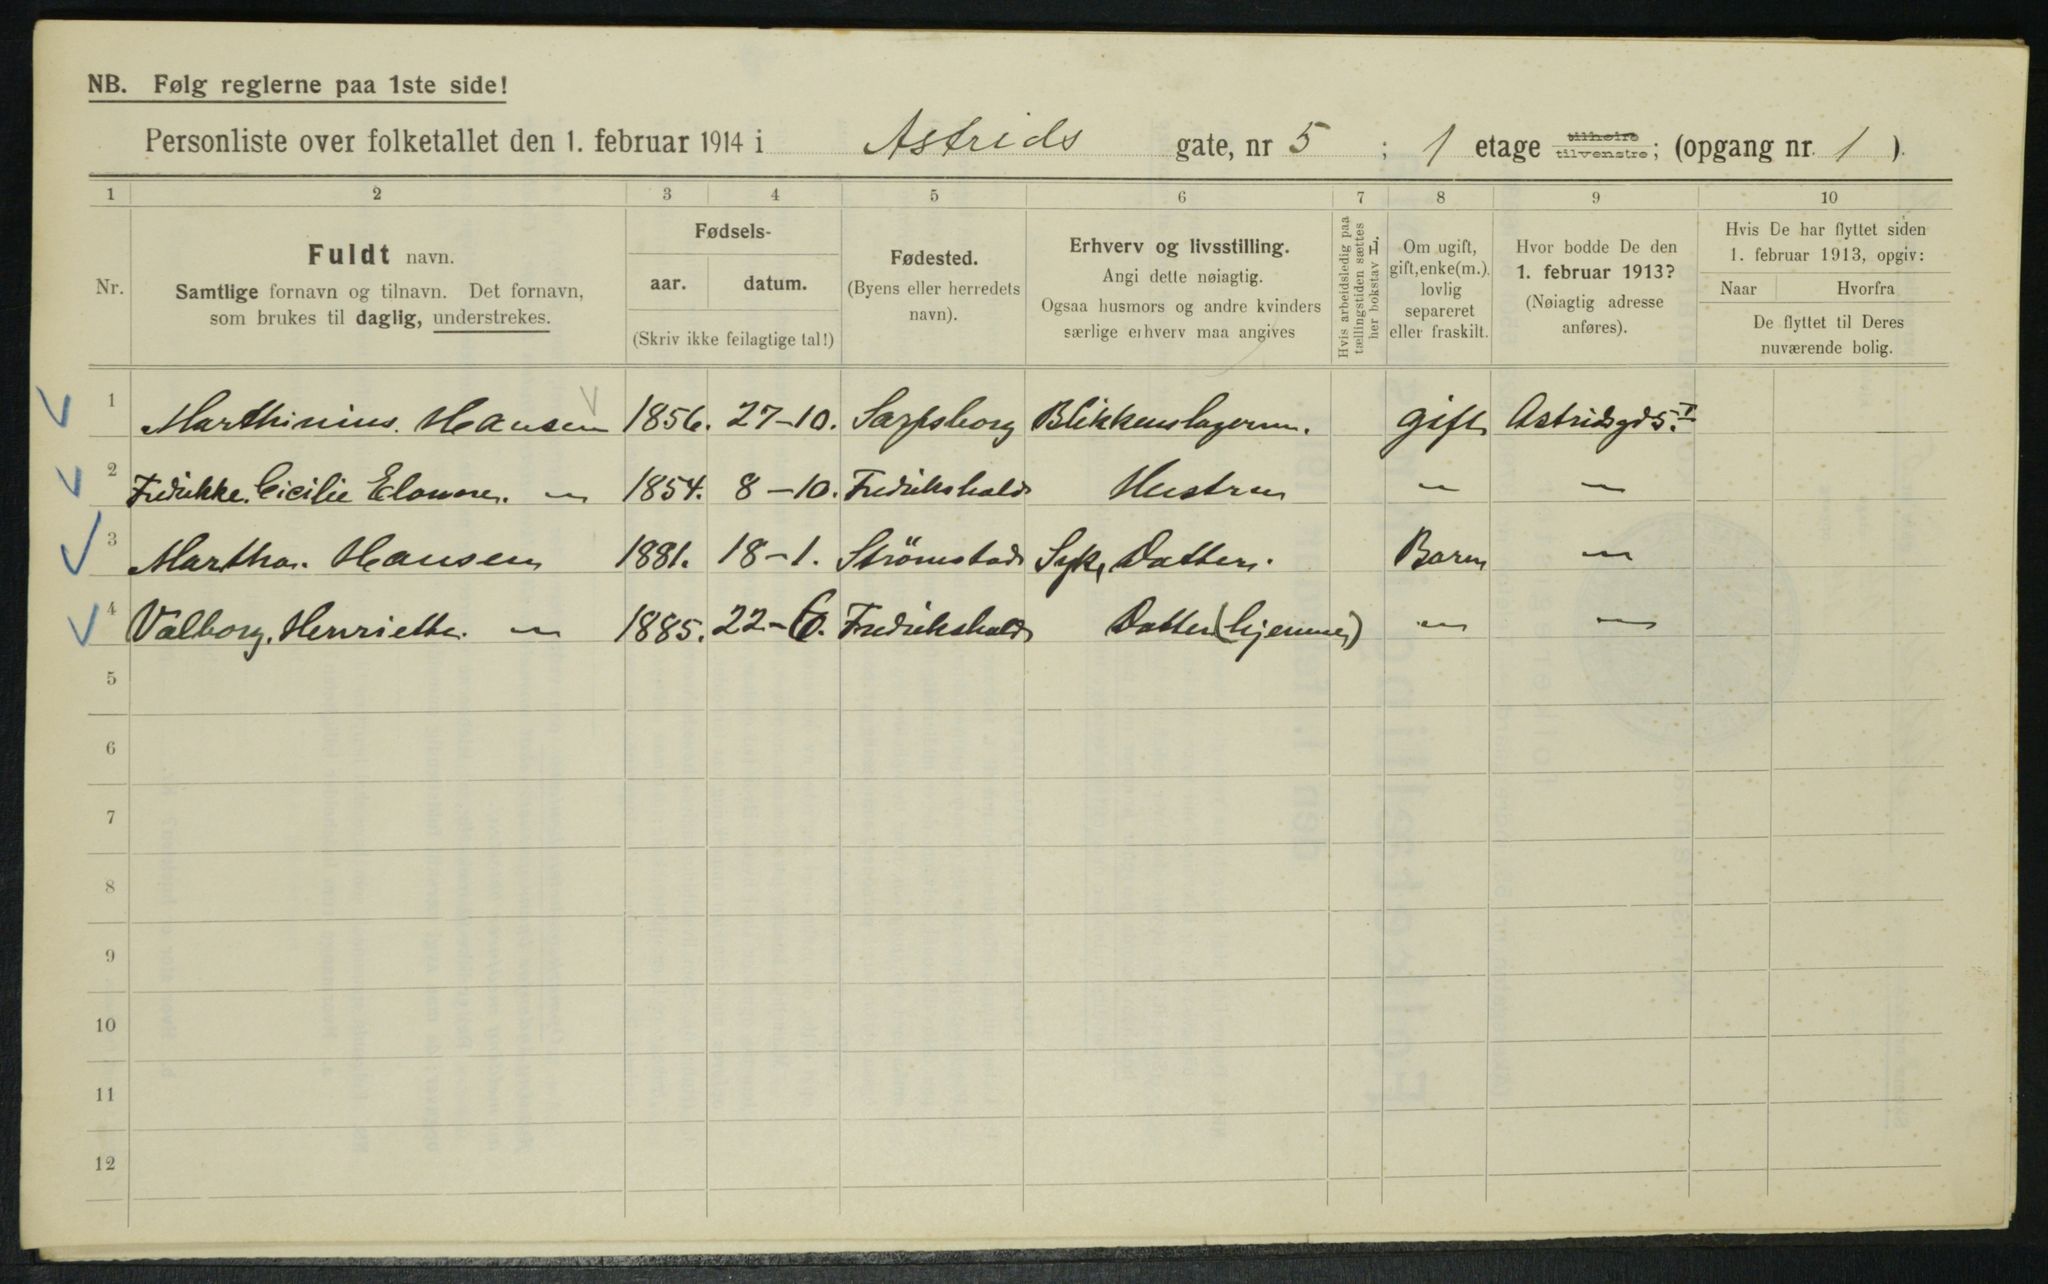 NB. Følg reglerne paa 1ste side!
Personliste over folketallet den 1. februar 1914 i Astrids gate, nr 5 ; 1 etage tilhøire tilvenstre; (opgang nr. 1 ).
1 2 3 4 5 6 7 8 9 10
Nr.
Fuldt navn.
Samtlige fornavn og tilnavn. Det fornavn,
som brukes til daglig, understrekes.
Fødsels-
aar. datum.
(Skriv ikke feilagtige tal!)
Fødested.
(Byens eller herredets
navn).
Erhverv og livsstilling.
Angi dette nøiagtig.
Ogsaa husmors og andre kvinders
særlige erhverv maa angives
Hvis arbeidsledig paa
tællingstiden sættes
her bokstav L.
Om ugift,
gift, enke(m.).
lovlig
separeret
eller fraskilt.
Hvor bodde De den
1. februar 1913?
(Nøiagtig adresse
anføres).
Hvis De har flyttet siden
1. februar 1913, opgiv:
Naar Hvorfra
De flyttet til Deres
nuværende bolig.
1 Marthinius. Hansen 1856. 27-10. Sarpsborg Blikkenslagerm. gift Astridsgd 5. I
2 Fredrikke. Cicilie Elonore. — 1854. 8-10. Fredrikshald Hustru — —
3 Martha. Hansen 1881. 18-1. Strømstad Syk, Datter. Barn —
4 Valborg. Henriette. — 1885. 22-6. Fredrikshald Datter (hjemme) — —
5
6
7
8
9
10
11
12